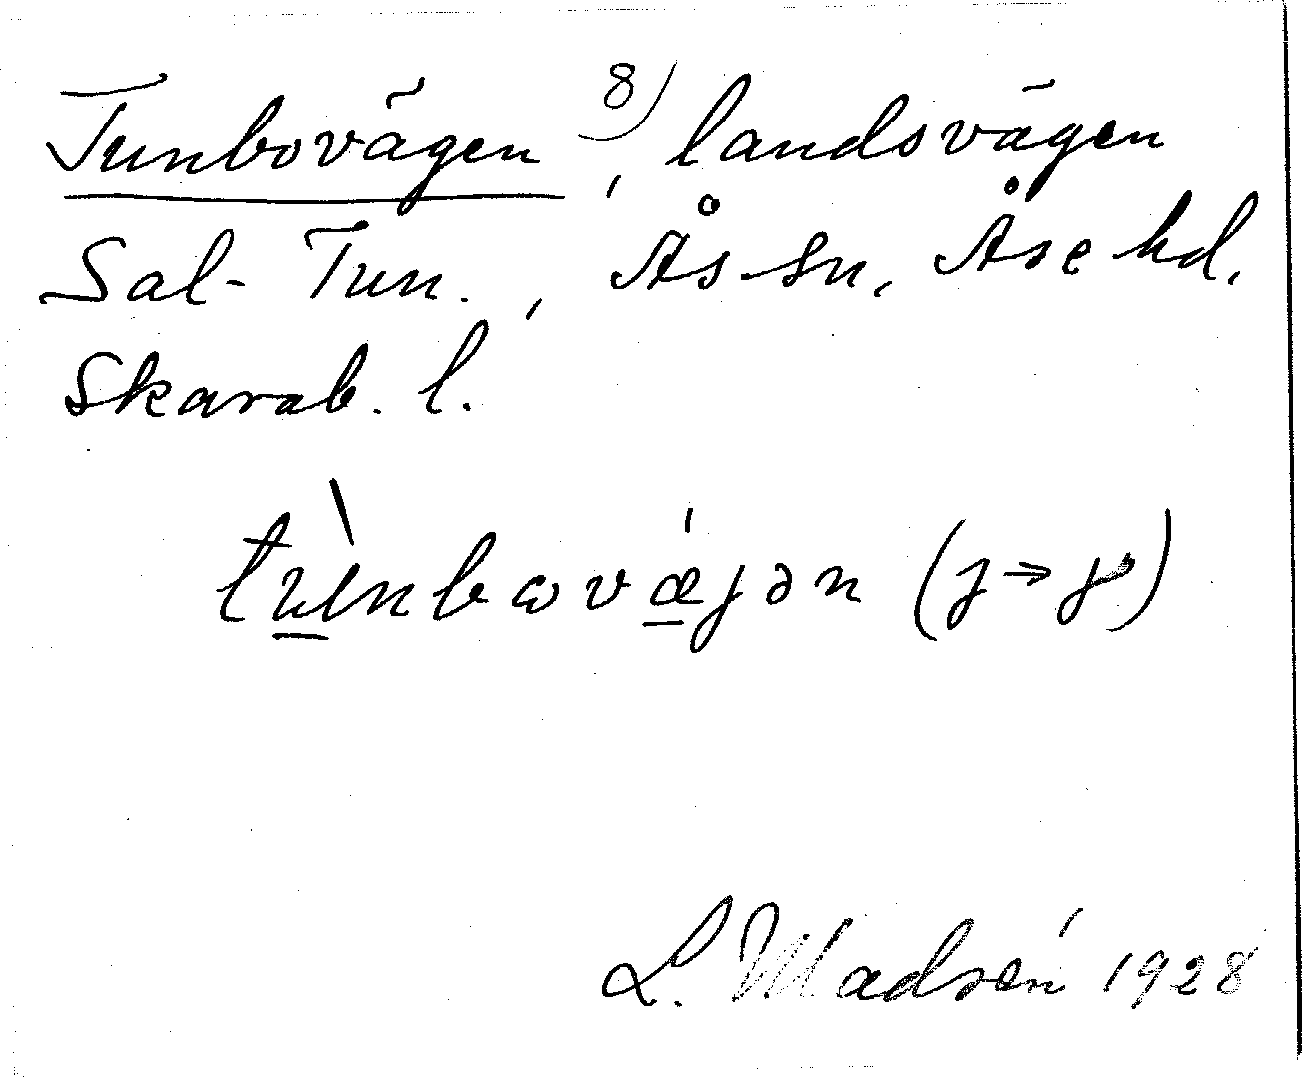 Tunbovägen 8), landsvägen
Sal - Tun., Ås sn, Åse hd,
Skarab. l.
tùnbωvæjən (j→ɟ)
L. Madsén 1928